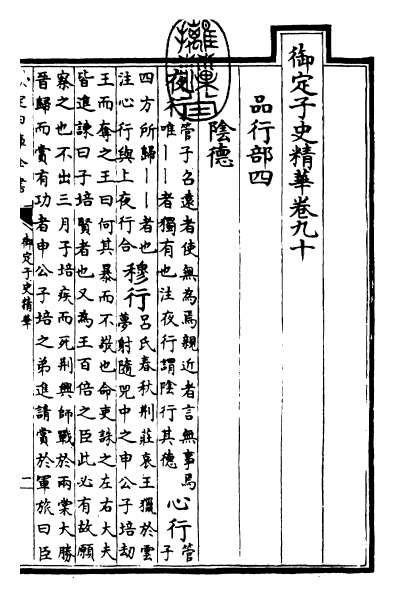 御定子史精華卷九十
品行部四
陰德
夜行管子召遠者使無為焉親近者言無事焉
唯｜｜者獨有也注夜行謂陰行其德心行管
子
四方所歸｜｜者也
注心行與上夜行合穆行呂氏春秋荆莊哀王獵於雲
夢射隨兕中之申公子培劫
王而奪之王曰何其暴而不敬也命吏誅之左右大夫
皆進諫曰子培賢者也又為王百倍之臣此必有故願
察之也不出三月子培疾而死荆興師戰於兩棠大勝
晉歸而賞有功者申公子培之弟進請賞於軍旅曰臣
御定子史精華
二